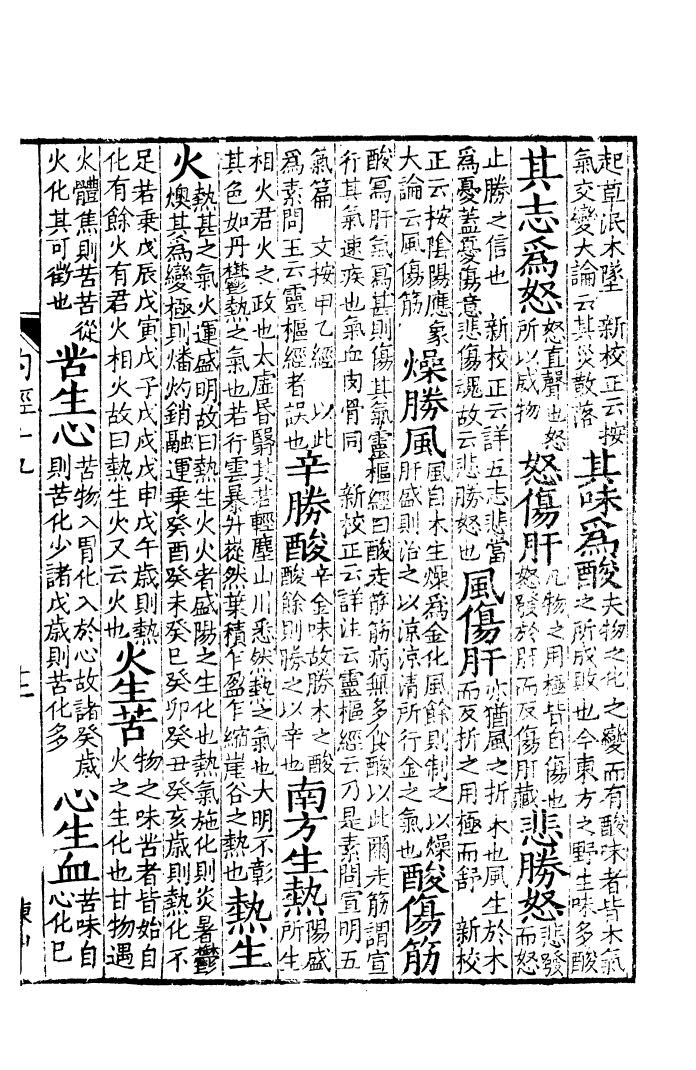 起草泯木墜　新校正云按氣交變大論云其災散落其味爲酸夫物之化之變而有酸味者皆木氣之所成敗也今東方之野生味多酸
其志爲怒怒直聲也怒所以威物怒傷肝凡物之用極皆自傷也怒發於肝而反傷肝藏悲勝怒悲發而怒
止勝之信也　新校正云詳五志悲當爲憂蓋憂傷意悲傷魂故云悲勝怒也風傷肝亦猶風之折木也風生於木而反折之用極而舒　新校
正云按陰陽應象大論云風傷筋燥勝風風自木生燥爲金化風餘則制之以燥肝盛則治之以涼涼清所行金之氣也酸傷筋
酸寫肝氣寫甚則傷其氣靈樞經曰酸走筋筋病無多食酸以此爾走筋謂宣行其氣速疾也氣血肉骨同　新校正云詳注云靈樞經云乃是素問宣明五
氣篇　文按甲乙經　以此爲素問王云靈樞經者誤也辛勝酸辛金味故勝木之酸酸餘則勝之以辛也南方生熱陽盛所生
相火君火之政也太虛昏翳其若輕塵山川悉然熱之氣也大明不彰其色如丹鬱熱之氣也若行雲暴升嵸然葉積乍盈乍縮崖谷之熱也熱生
火熱甚之氣火運盛明故曰熱生火火者盛陽之生化也熱氣施化則炎暑鬱燠其爲變極則燔灼銷融運乘癸酉癸未癸巳癸卯癸丑癸亥歲則熱化不
足若乘戊辰戊寅戊子戊戌戊申戊午歲則熱化有餘火有君火相火故曰熱生火又云火也火生苦物之味苦者皆始自火之生化也甘物遇
火體焦則苦苦從火化其可徵也苦生心苦物入胃化入於心故諸癸歲則苦化少諸戊歲則苦化多心生血苦味自心化已